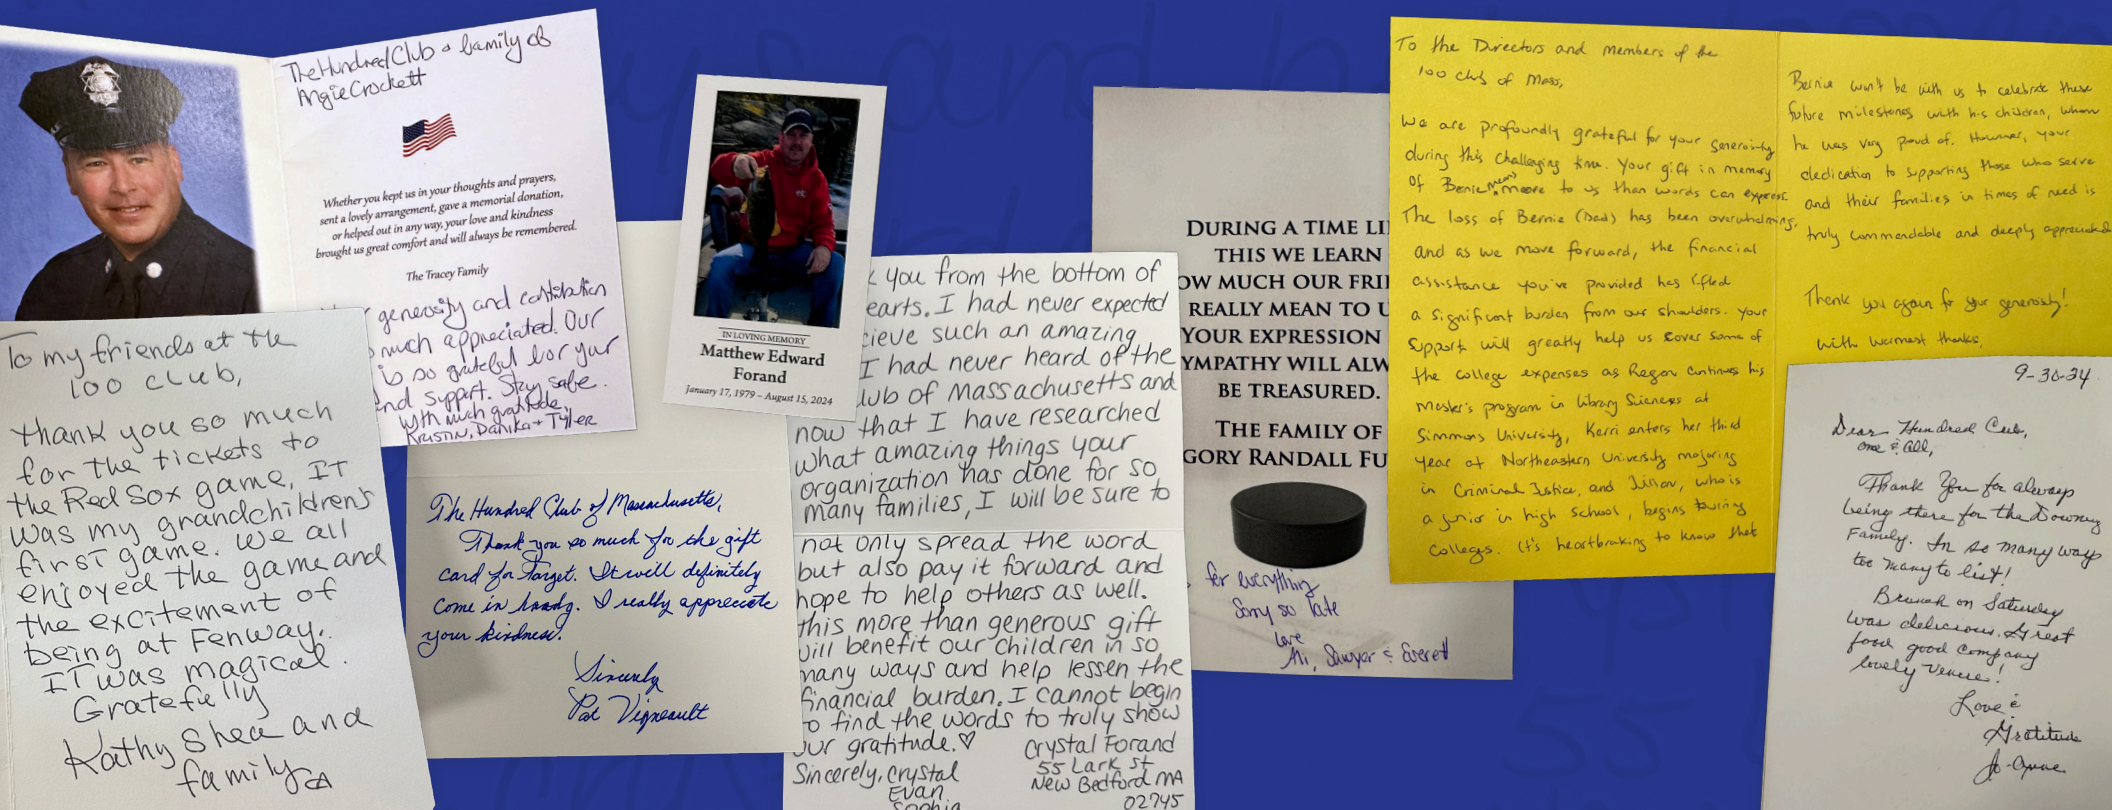 The Hundred Club & family of
Angie Crockett
Whether you kept us in your thoughts and prayers,
sent a lovely arrangement, gave a memorial donation,
or helped out in any way, your love and kindness
brought us great comfort and will always be remembered.
The Tracey Family
generosity and contribution
much appreciated. Our
is so grateful for your
and support. Stay safe.
With much gratitude,
Kristin, Danika + Tyler
To my friends at the
100 club,
Thank you so much
for the tickets to
the Red Sox game. It
was my grandchildren's
first game. We all
enjoyed the game and
the excitement of
being at Fenway.
IT was magical.
Gratefully
Kathy Shea and
family
The Hundred Club of Massachusetts,
Thank you so much for the gift
card for Target. It will definitely
come in handy. I really appreciate
your kindness.
Sincerely
Pat Vigneault
IN LOVING MEMORY
Matthew Edward
Forand
January 17, 1979 – August 15, 2024
k you from the bottom of
earts. I had never expected
cieve such an amazing
I had never heard of the
lub of Massachusetts and
now that I have researched
what amazing things your
organization has done for so
many families, I will be sure to
not only spread the word
but also pay it forward and
hope to help others as well.
this more than generous gift
will benefit our children in so
many ways and help lessen the
financial burden. I cannot begin
to find the words to truly show
our gratitude.♡
Sincerely, Crystal
Evan
Sophia
Crystal Forand
55 Lark St
New Bedford MA
02745
DURING A TIME LI
THIS WE LEARN
OW MUCH OUR FRI
REALLY MEAN TO U
YOUR EXPRESSION
YMPATHY WILL ALW
BE TREASURED.
THE FAMILY OF
GORY RANDALL FU
for everything
Sorry so late
Love
Ali, Sawyer & Everett
To the Directors and members of the
100 club of Mass,
We are profoundly grateful for your generosity
during this challenging time. Your gift in memory
of Bernie means more to us than words can express.
The loss of Bernie (Dad) has been overwhelming,
and as we move forward, the financial
assistance you've provided has lifted
a significant burden from our shoulders. Your
support will greatly help us cover some of
the college expenses as Regan continues his
Master's program in Library Sciences at
Simmons University, Kerri enters her third
year at Northeastern University majoring
in Criminal Justice, and Jillian, who is
a junior in high school, begins
colleges. It's heartbreaking to know that
Bernie won't be with us to celebrate these
future milestones with his children, whom
he was very proud of. However, your
dedication to supporting those who serve
and their families in times of need is
truly commendable and deeply appreciated
Thank you again for your generosity!
With warmest thanks,
9-30-24
Dear Hundred Club,
one & all,
Thank You for always
being there for the Downey
Family. In so many ways
too many to list!
Brunch on Saturday
was delicious. Great
food good company
lovely venue!
Love &
Gratitude
Jo-Anne